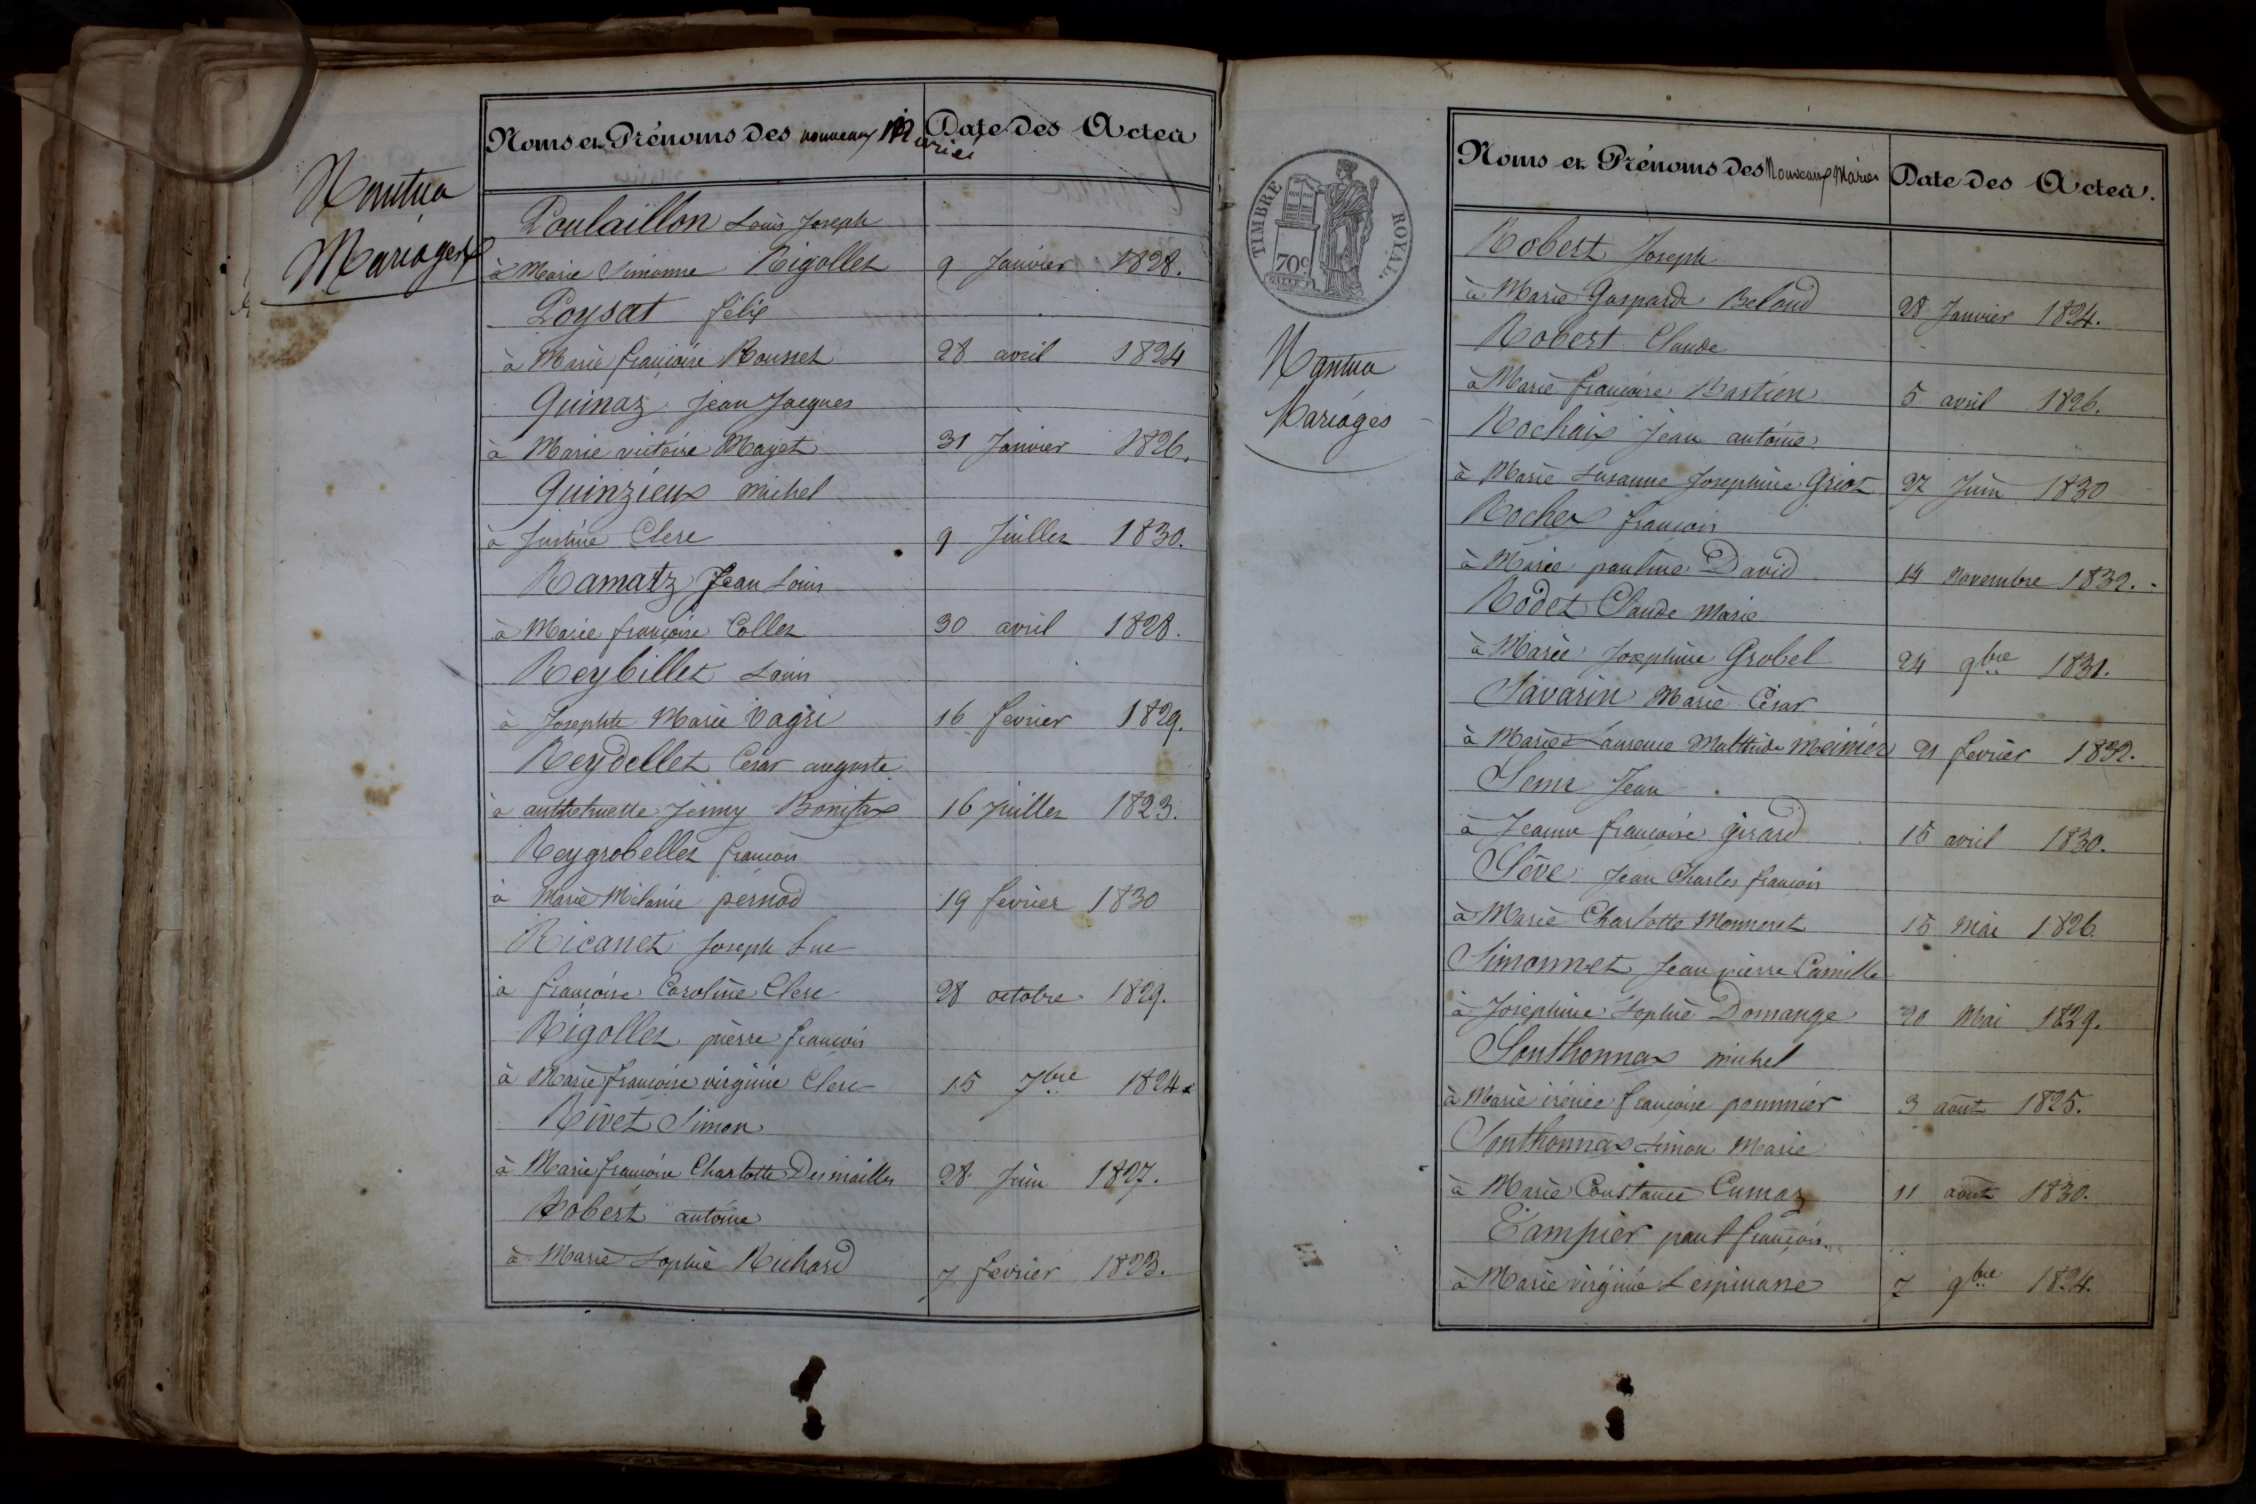 Nantua
Mariages
Noms et Prénoms des nouveaux Mariés Date des Actes
Poulaillon Louis Joseph
à Marie Simonne Rigollet 9 Janvier 1828.
Poysat félix
à Marie françoise Rousset 28 avril 1824
Quinaz Jean Jacques
à Marie victoire Mayet 31 Janvier 1826.
Quinzieux michel
à Justine Clerc 9 Juillet 1830.
Ramatz Jean Louis
à Marie françoise Collet 30 avril 1828.
Reybillet Louis
à Josephte Marie Vagri 16 fevrier 1829.
Reydellet César auguste
à Jenny Bonifax 16 Juillet 1823.
Reygrobellet françois
à Marie Mélanie pernod 19 fevrier 1830
Ricanet Joseph Luc
à françoise Caroline Clerc 28 octobre 1829.
Rigollet pierre françois
à Marie françoise virginie Clerc 15 7bre 1824
Rivet Simon
à Marie françoise Charlotte Desmailles 28 Juin 1827.
Robert antoine
à Marie Sophie Richard 7 fevrier 1823.
TIMBRE ROYAL
70c
Nantua
Mariages
Noms et Prénoms des Nouveaux Mariés Date des Actes.
Robert Joseph
à Marie Gasparde Beloud 28 Janvier 1824.
Robert Claude
à Marie françoise Bastien 5 avril 1826.
Rochaix Jean antoine
à Marie Susanne Josephine Griot 27 Juin 1830
Rocher françois
à Marie pauline David 14 novembre 1832.
Rodet Claude Marie
à Marie Josephine Grobel 24 9bre 1831.
Savarin Marie César
à Marie Laurence Malthide Meinier 21 fevrier 1832.
Jean
à Jeanne françoise girard 15 avril 1830.
Sève Jean Charles françois
à Marie Charlotte Monneret 15 Mai 1826.
Simonnet Jean pierre Camille
à Joséphine Sophie Domange 20 Mai 1829.
Sonthonnax michel
à Marie irénée françoise pommier 3 août 1825.
Sonthonnax Simon Marie
à Marie Constance Cumaz 11 août 1830.
Tampier paul françois
à Marie virginie Lespinasse 7 9bre 1824.